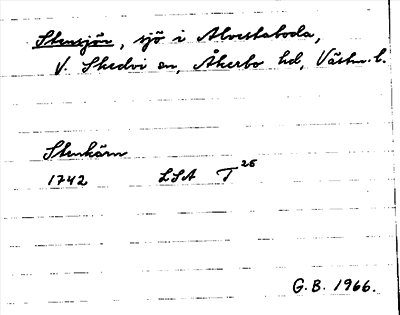 Stensjön, sjö i Alvestaboda,
V. Skedvi sn, Åkerbo hd, Västm. l.
Stenkärn
1742 LSA T 25
G.B. 1966.